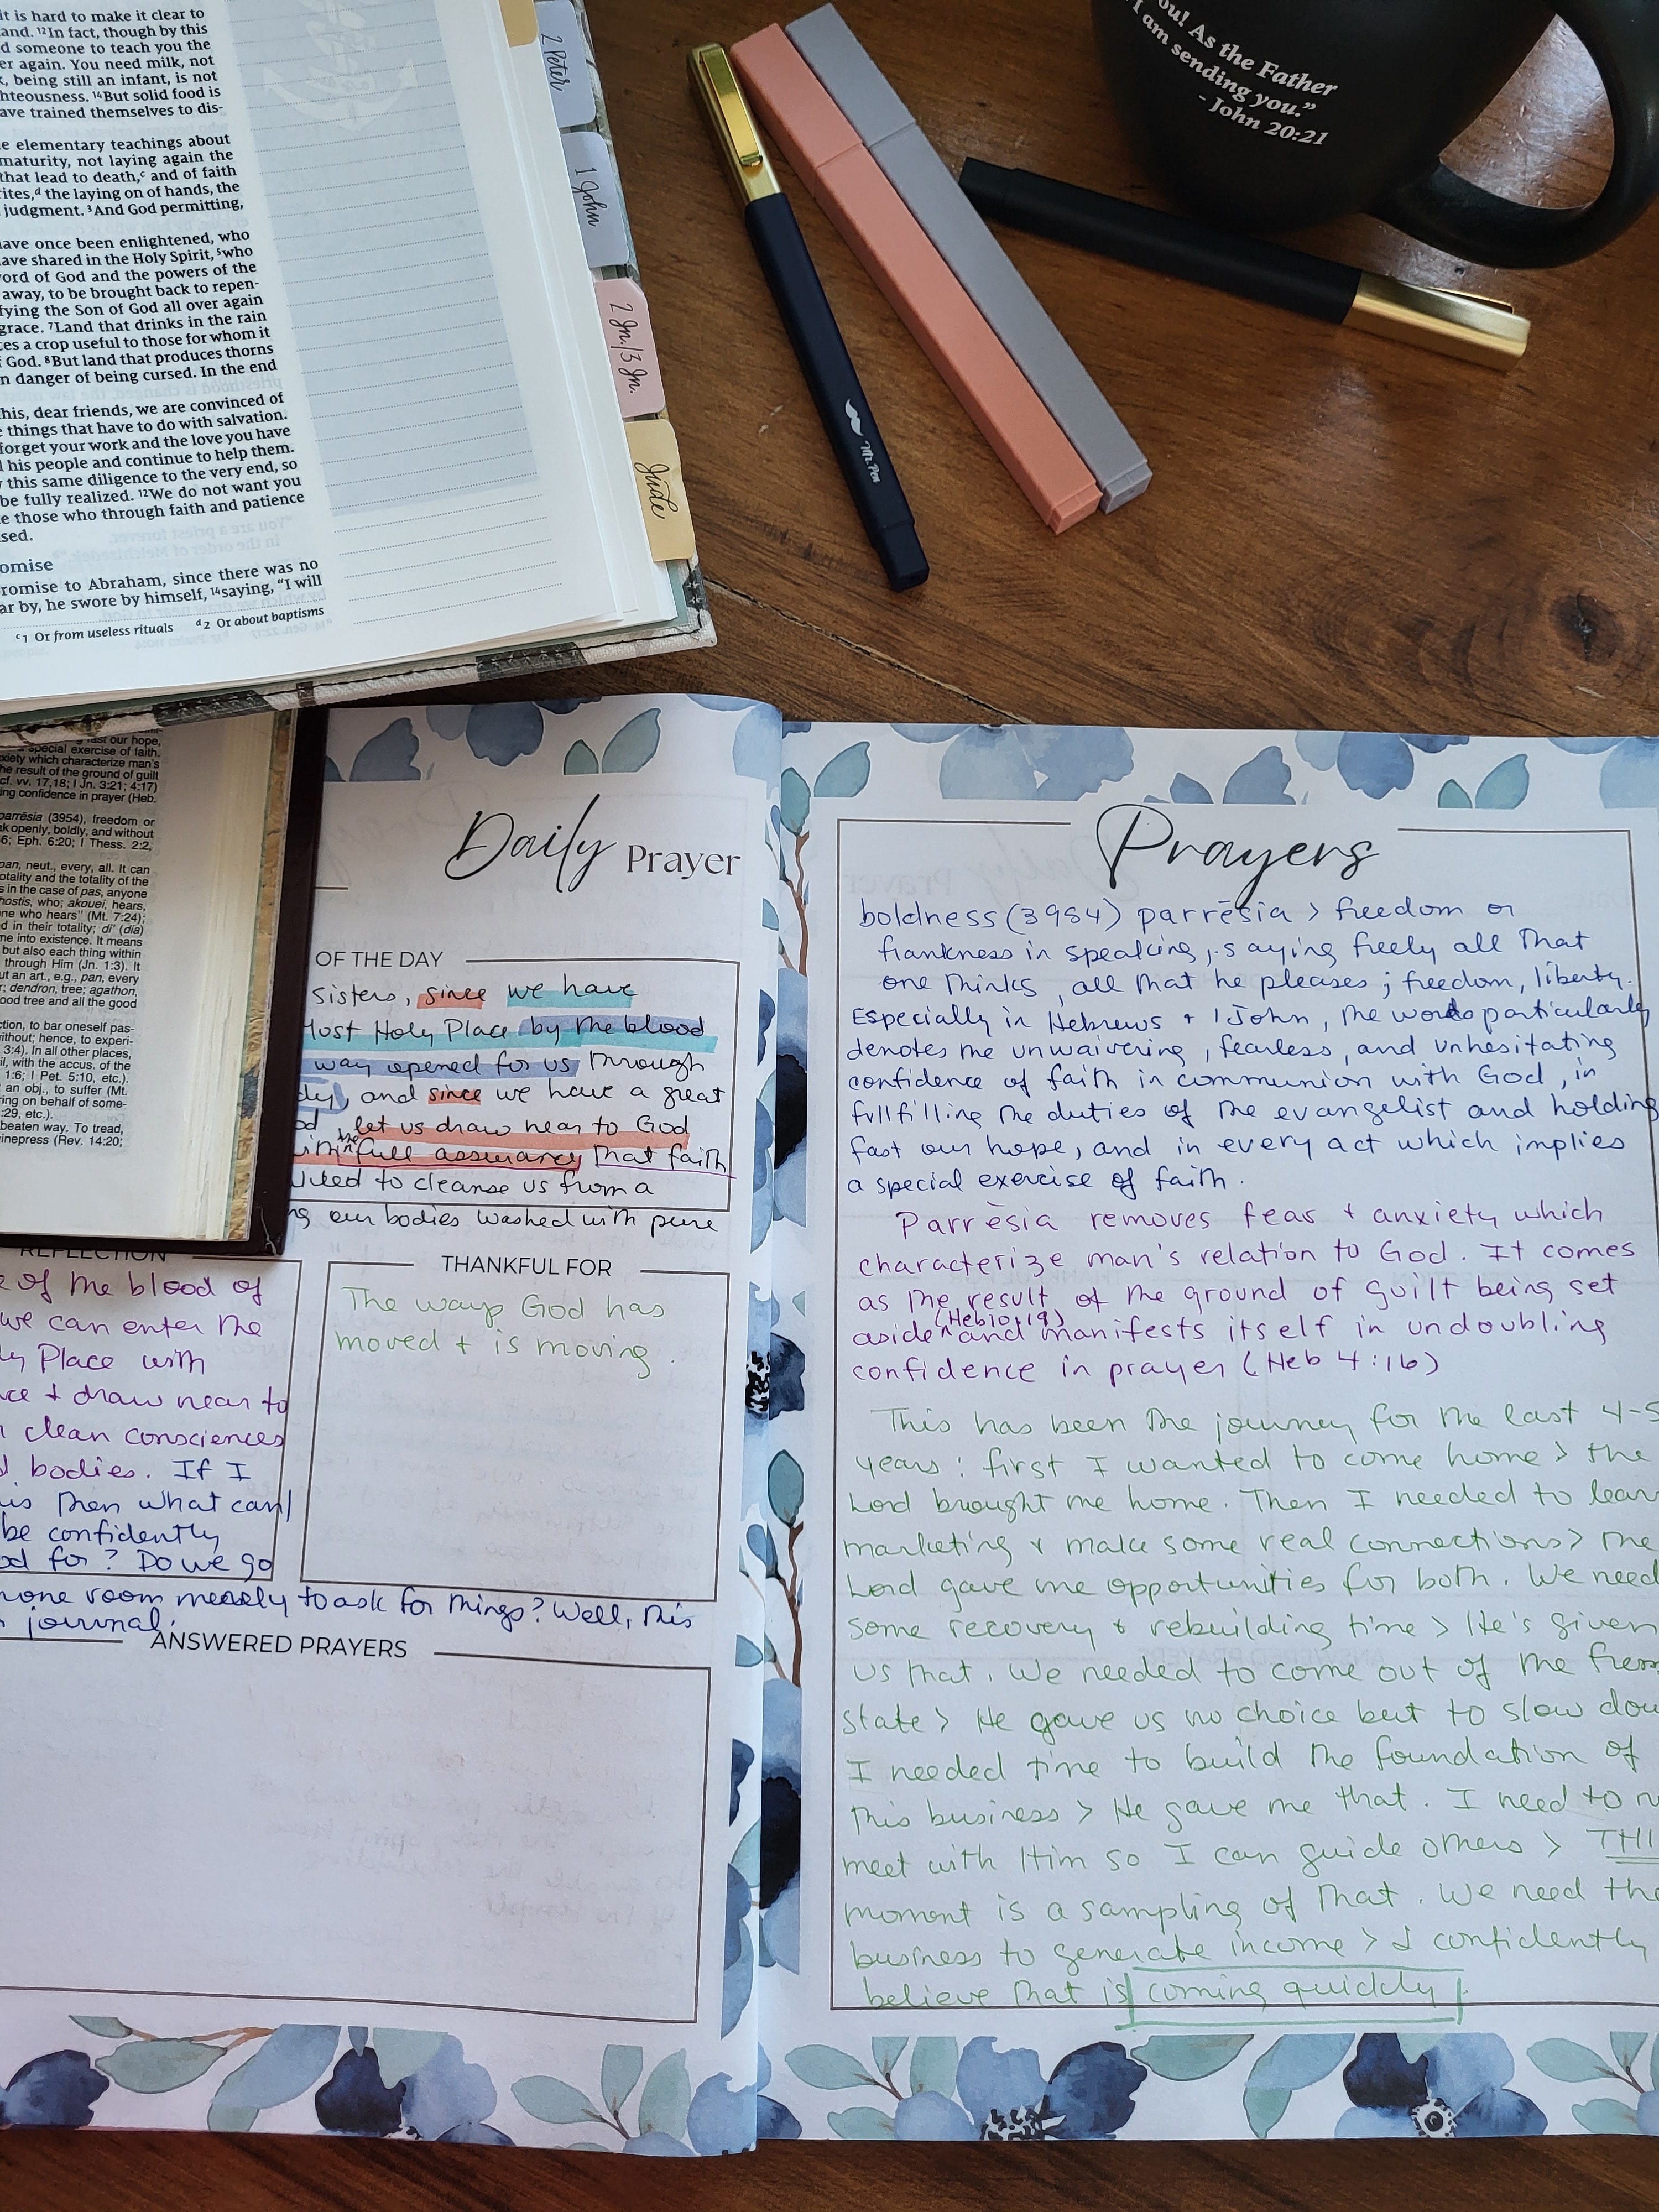 it is hard to make it clear to
and. ¹²In fact, though by this
d someone to teach you the
er again. You need milk, not
, being still an infant, is not
hteousness. ¹⁴But solid food is
ave trained themselves to dis-
e elementary teachings about
maturity, not laying again the
that lead to death,ᶜ and of faith
rites,ᵈ the laying on of hands, the
judgment. ³And God permitting,
ave once been enlightened, who
ave shared in the Holy Spirit, ⁵who
ord of God and the powers of the
away, to be brought back to repen-
fying the Son of God all over again
grace. ⁷Land that drinks in the rain
es a crop useful to those for whom it
God. ⁸But land that produces thorns
n danger of being cursed. In the end
his, dear friends, we are convinced of
e things that have to do with salvation.
forget your work and the love you have
his people and continue to help them.
this same diligence to the very end, so
be fully realized. ¹²We do not want you
e those who through faith and patience
sed.
omise
romise to Abraham, since there was no
ar by, he swore by himself, ¹⁴saying, "I will
ᶜ1 Or from useless rituals ᵈ2 Or about baptisms
2 Peter
1 John
2 Jn./3 Jn.
Jude
Mr. Pen
ou! As the Father
I am sending you."
- John 20:21
ast our hope,
special exercise of faith.
xiety which characterize man's
he result of the ground of guilt
cf. vv. 17,18; I Jn. 3:21; 4:17)
ing confidence in prayer (Heb.
parrēsia (3954), freedom or
ak openly, boldly, and without
6; Eph. 6:20; I Thess. 2:2,
pan, neut., every, all. It can
otality and the totality of the
s in the case of pas, anyone
hostis, who; akouei, hears,
one who hears" (Mt. 7:24);
d in their totality; di' (dia)
me into existence. It means
but also each thing within
through Him (Jn. 1:3). It
ut an art., e.g., pan, every
; dendron, tree; agathon,
ood tree and all the good
ction, to bar oneself pas-
vithout; hence, to experi-
3:4). In all other places,
il, with the accus. of the
1:6; I Pet. 5:10, etc.).
an obj., to suffer (Mt.
ring on behalf of some-
:29, etc.).
beaten way. To tread,
vinepress (Rev. 14:20;
Daily Prayer
OF THE DAY
sisters, since we have
Most Holy Place by the blood
way opened for us through
dy, and since we have a great
od, let us draw near to God
with the full assurance that faith
led to cleanse us from a
ng our bodies washed with pure
REFLECTION
e of the blood of
we can enter the
ly Place with
ce + draw near to
n clean consciences
d bodies. If I
is then what can I
be confidently
od for? Do we go
none room merely to ask for things? Well, this
journal.
THANKFUL FOR
The ways God has
moved + is moving.
ANSWERED PRAYERS
Prayers
boldness (3954) parrēsia > freedom or
frankness in speaking, saying freely all that
one thinks, all that he pleases; freedom, liberty.
Especially in Hebrews + 1 John, the words particularly
denotes the unwaivering, fearless, and unhesitating
confidence of faith in communion with God, in
fullfilling the duties of the evangelist and holding
fast our hope, and in every act which implies
a special exercise of faith.
Parrēsia removes fear + anxiety which
characterize man's relation to God. It comes
as the result of the ground of guilt being set
aside (Heb 10:19) and manifests itself in undoubling
confidence in prayer (Heb 4:16)
This has been the journey for the last 4-5
years: first I wanted to come home > the
Lord brought me home. Then I needed to learn
marketing + make some real connections > The
Lord gave me opportunities for both. We need
some recovery + rebuilding time > He's given
us that. We needed to come out of the
state > He gave us no choice but to slow dow
I needed time to build the foundation of
this business > He gave me that. I need to
meet with Him so I can guide others > THI
moment is a sampling of that. We need the
business to generate income > I confidently
believe that is coming quickly.